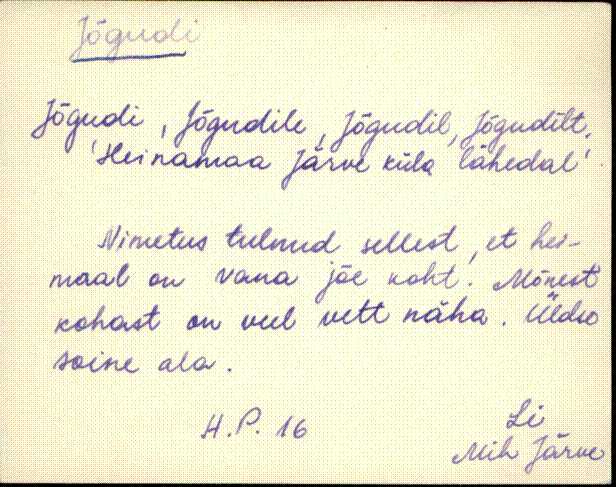 Jõgudi
Jõgudi, Jõgudile, Jõgudil, Jõgudilt.
'Heinamaa Järve küla lähedal'
Nimetus tulnud sellest, et hei-
maal on vana jõe koht. Mõnest
kohast on veel vett näha. Üldse
soine ala.
H.P. 16
Li
Mih Järve